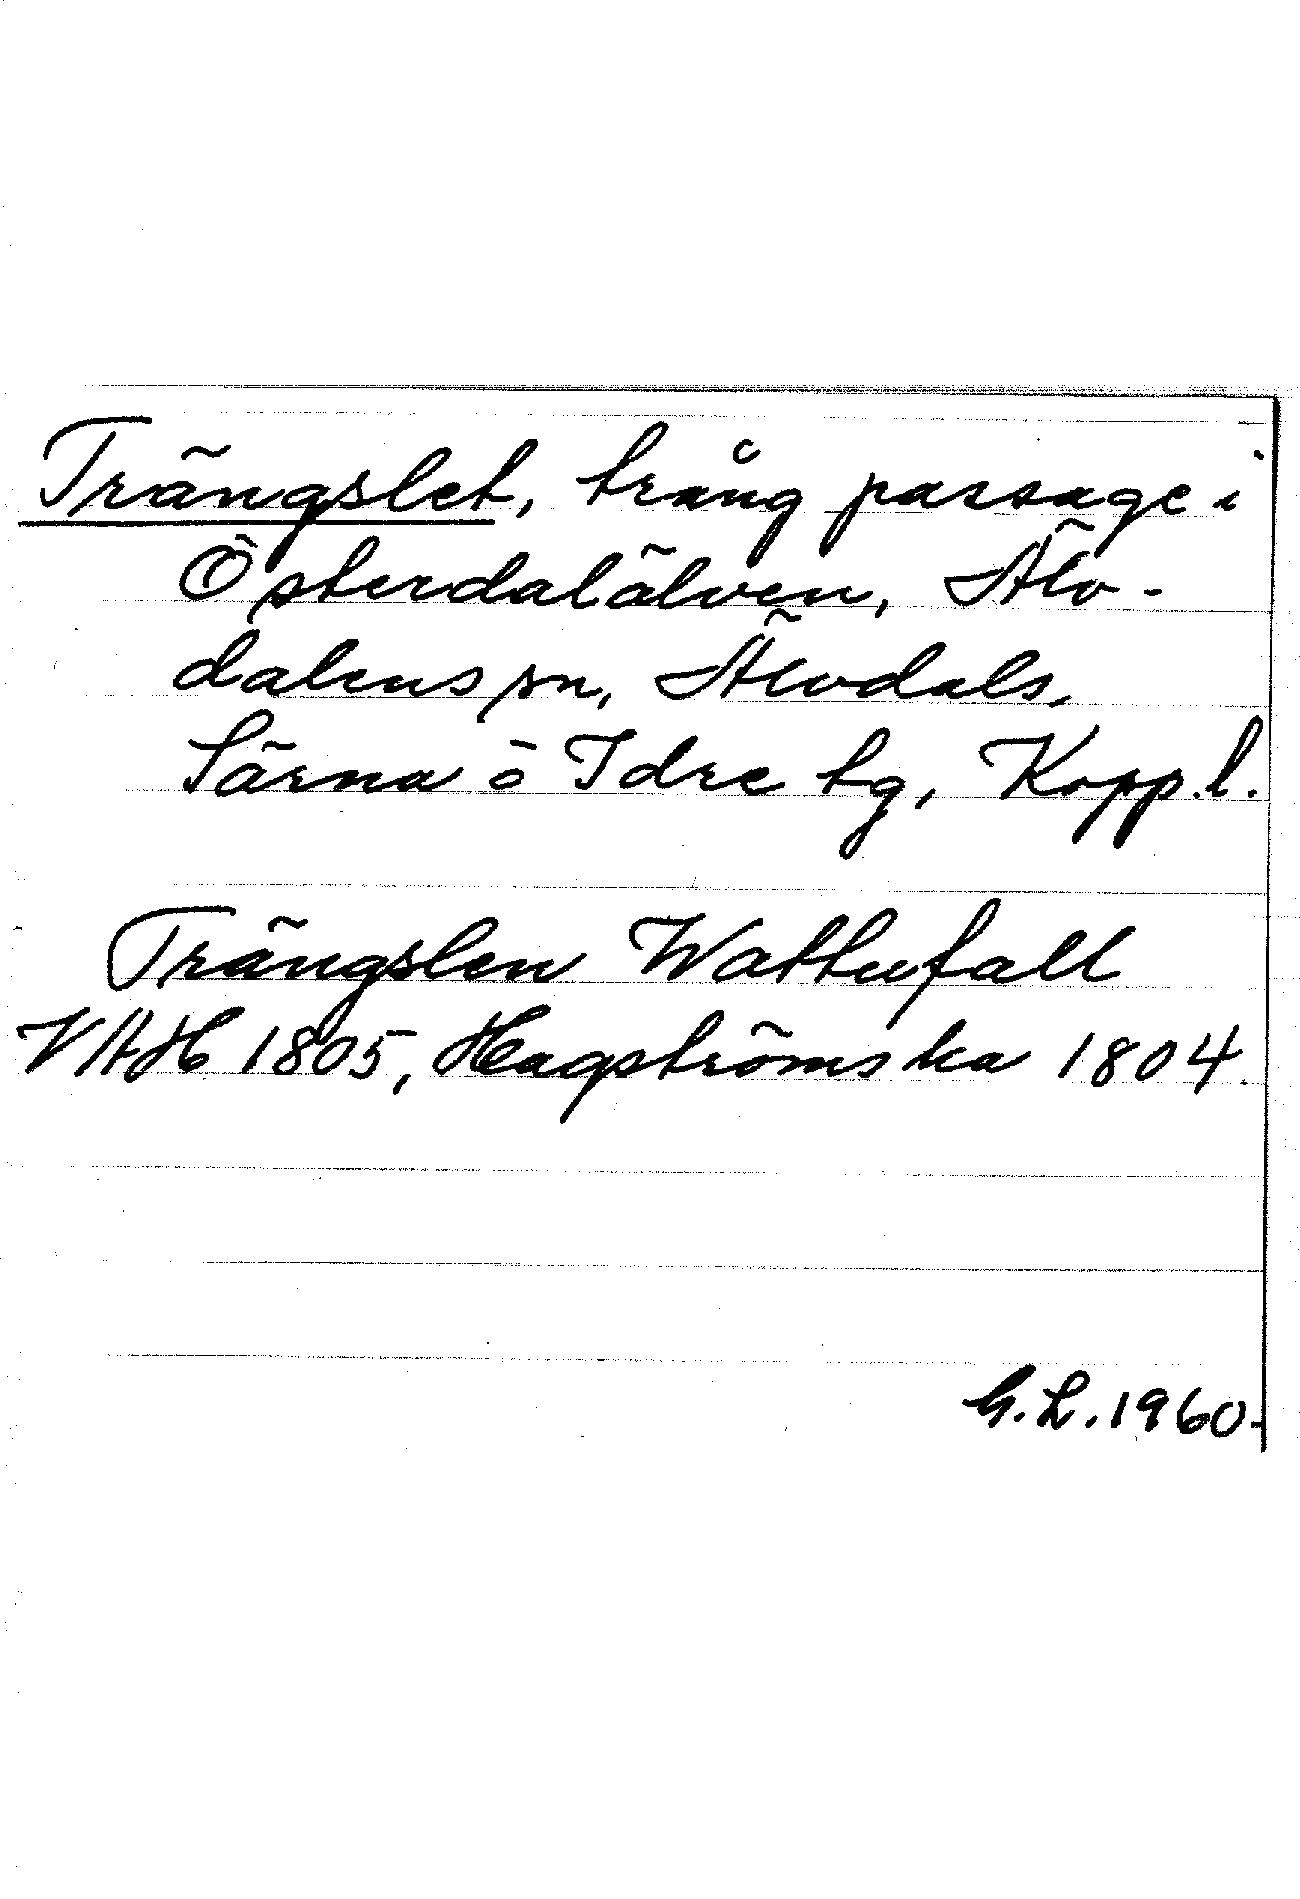 Trängslet, trång passage i
Österdalälven, Älv-
dalens sn, Älvdals,
Särna o Idre tg, Kopp.l.
Trängslen Wattufall
VAH 1805, Hagströmska 1804.
G.L. 1960.